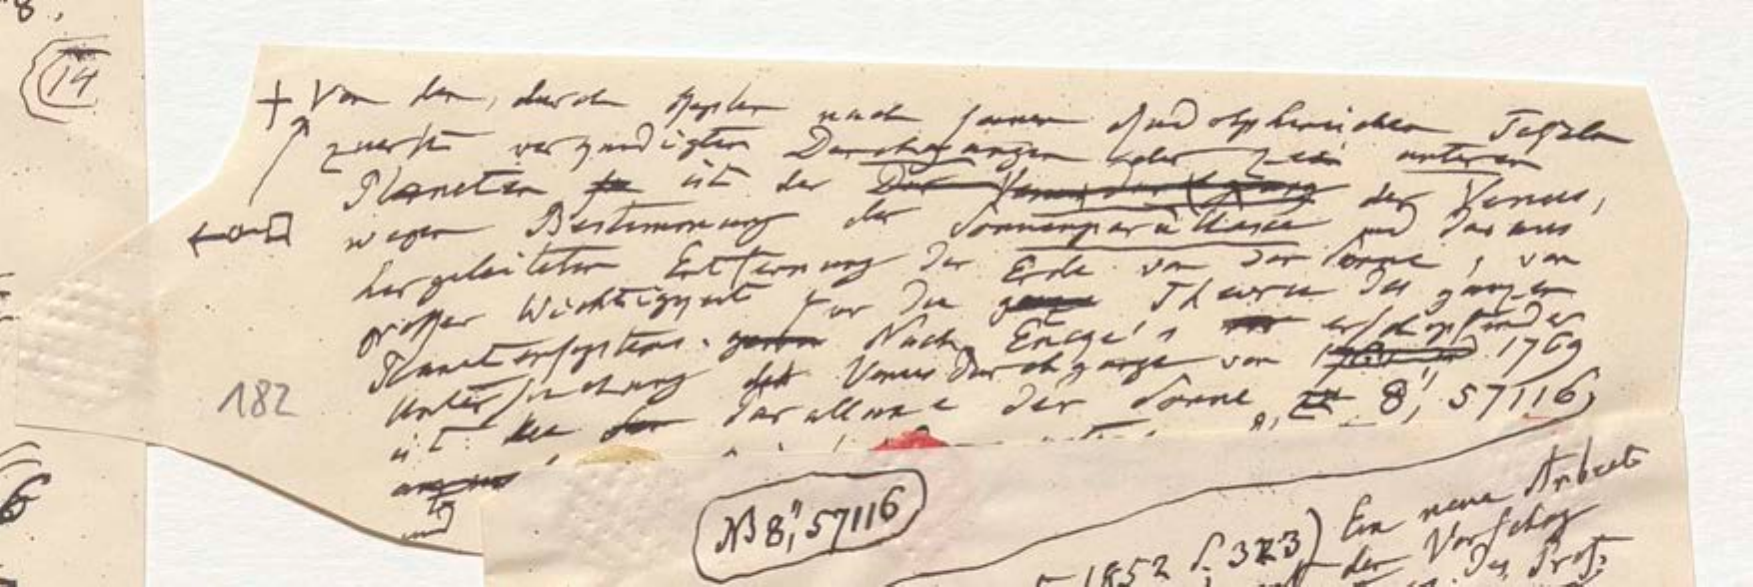 8,
14
+ Von den, durch Kepler nach seinen Rudolphinischen Tafeln
zuerst verkündigten Durchgängen der zwei unteren
Planeten ist der der Venus,
wegen Bestimmung der Sonnenparallaxe und daraus
hergeleiteten Entfernung der Erde von der Sonne, von
großer Wichtigkeit für die Theorie des ganzen
Planetensystems. Nach Encke's erschöpfender
Untersuchung des Venus Durchgangs von 1769
ist die Parallaxe der Sonne 8,"57116,
182
und
6
NB 8,"57116
1852 S. 323) Eine neue Arbeit
der Vorschlag
des Prof.